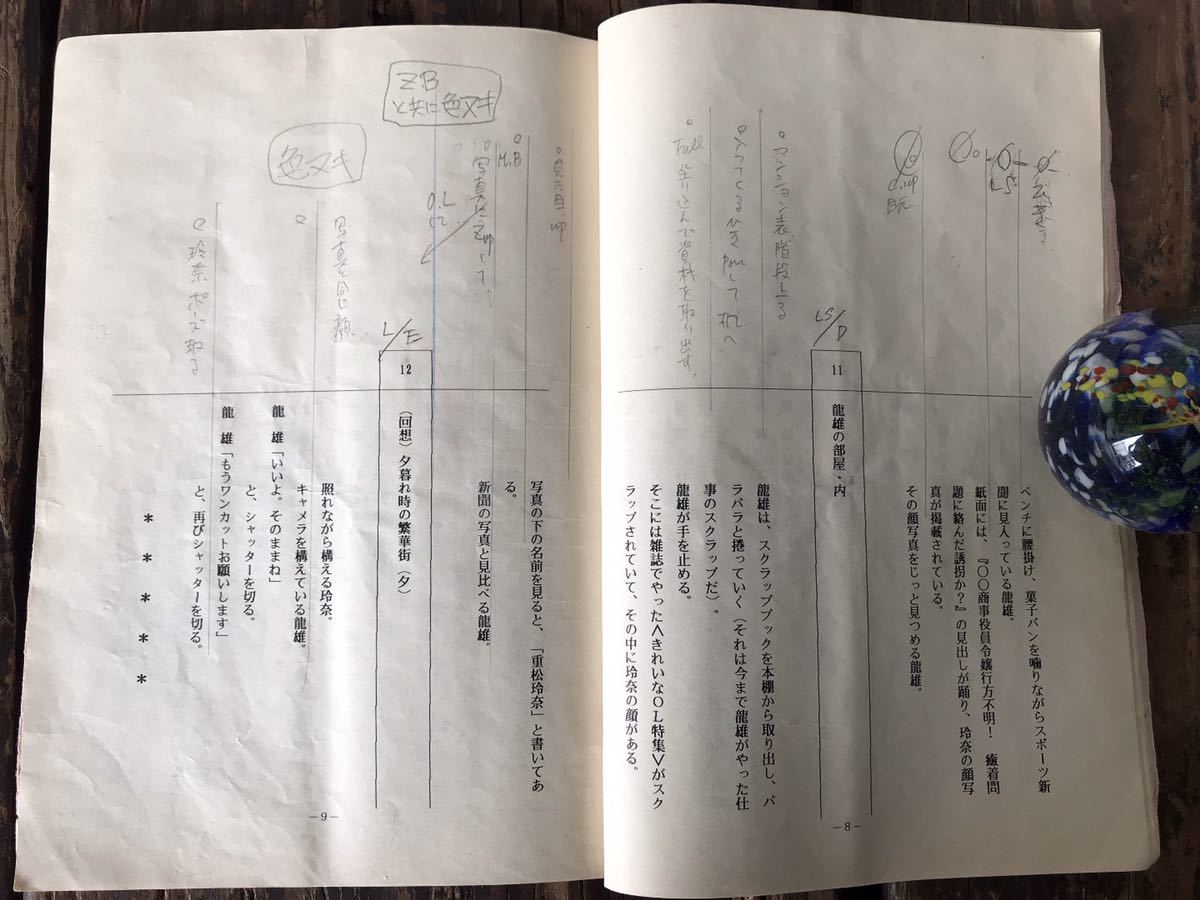 ベンチに腰掛け、菓子パンを噛りながらスポーツ新
聞に見入っている龍雄。
紙面には、『〇〇商事役員令嬢行方不明！　癒着問
題に絡んだ誘拐か？』の見出しが踊り、玲奈の顔写
真が掲載されている。
その顔写真をじっと見つめる龍雄。
LS
C.up
LS/D
11
龍雄の部屋・内
マンション表階段上る
Panして机へ
Full 座り込んで資料を取り出す。
龍雄は、スクラップブックを本棚から取り出し、パ
ラパラと捲っていく（それは今まで龍雄がやった仕
事のスクラップだ）。
龍雄が手を止める。
そこには雑誌でやった＜きれいなＯＬ特集＞がスク
ラップされていて、その中に玲奈の顔がある。
―8―
M.B
写真の下の名前を見ると、「重松玲奈」と書いてあ
る。
新聞の写真と見比べる龍雄。
ZB
と共に色ヌキ
O.L
L/E
12
（回想）夕暮れ時の繁華街（夕）
色ヌキ
写真と同じ顔
玲奈ポーズ取る
照れながら構える玲奈。
キャメラを構えている龍雄。
龍　雄「いいよ。そのままね」
と、シャッターを切る。
龍　雄「もうワンカットお願いします」
と、再びシャッターを切る。
＊　＊　＊　＊　＊
―9―